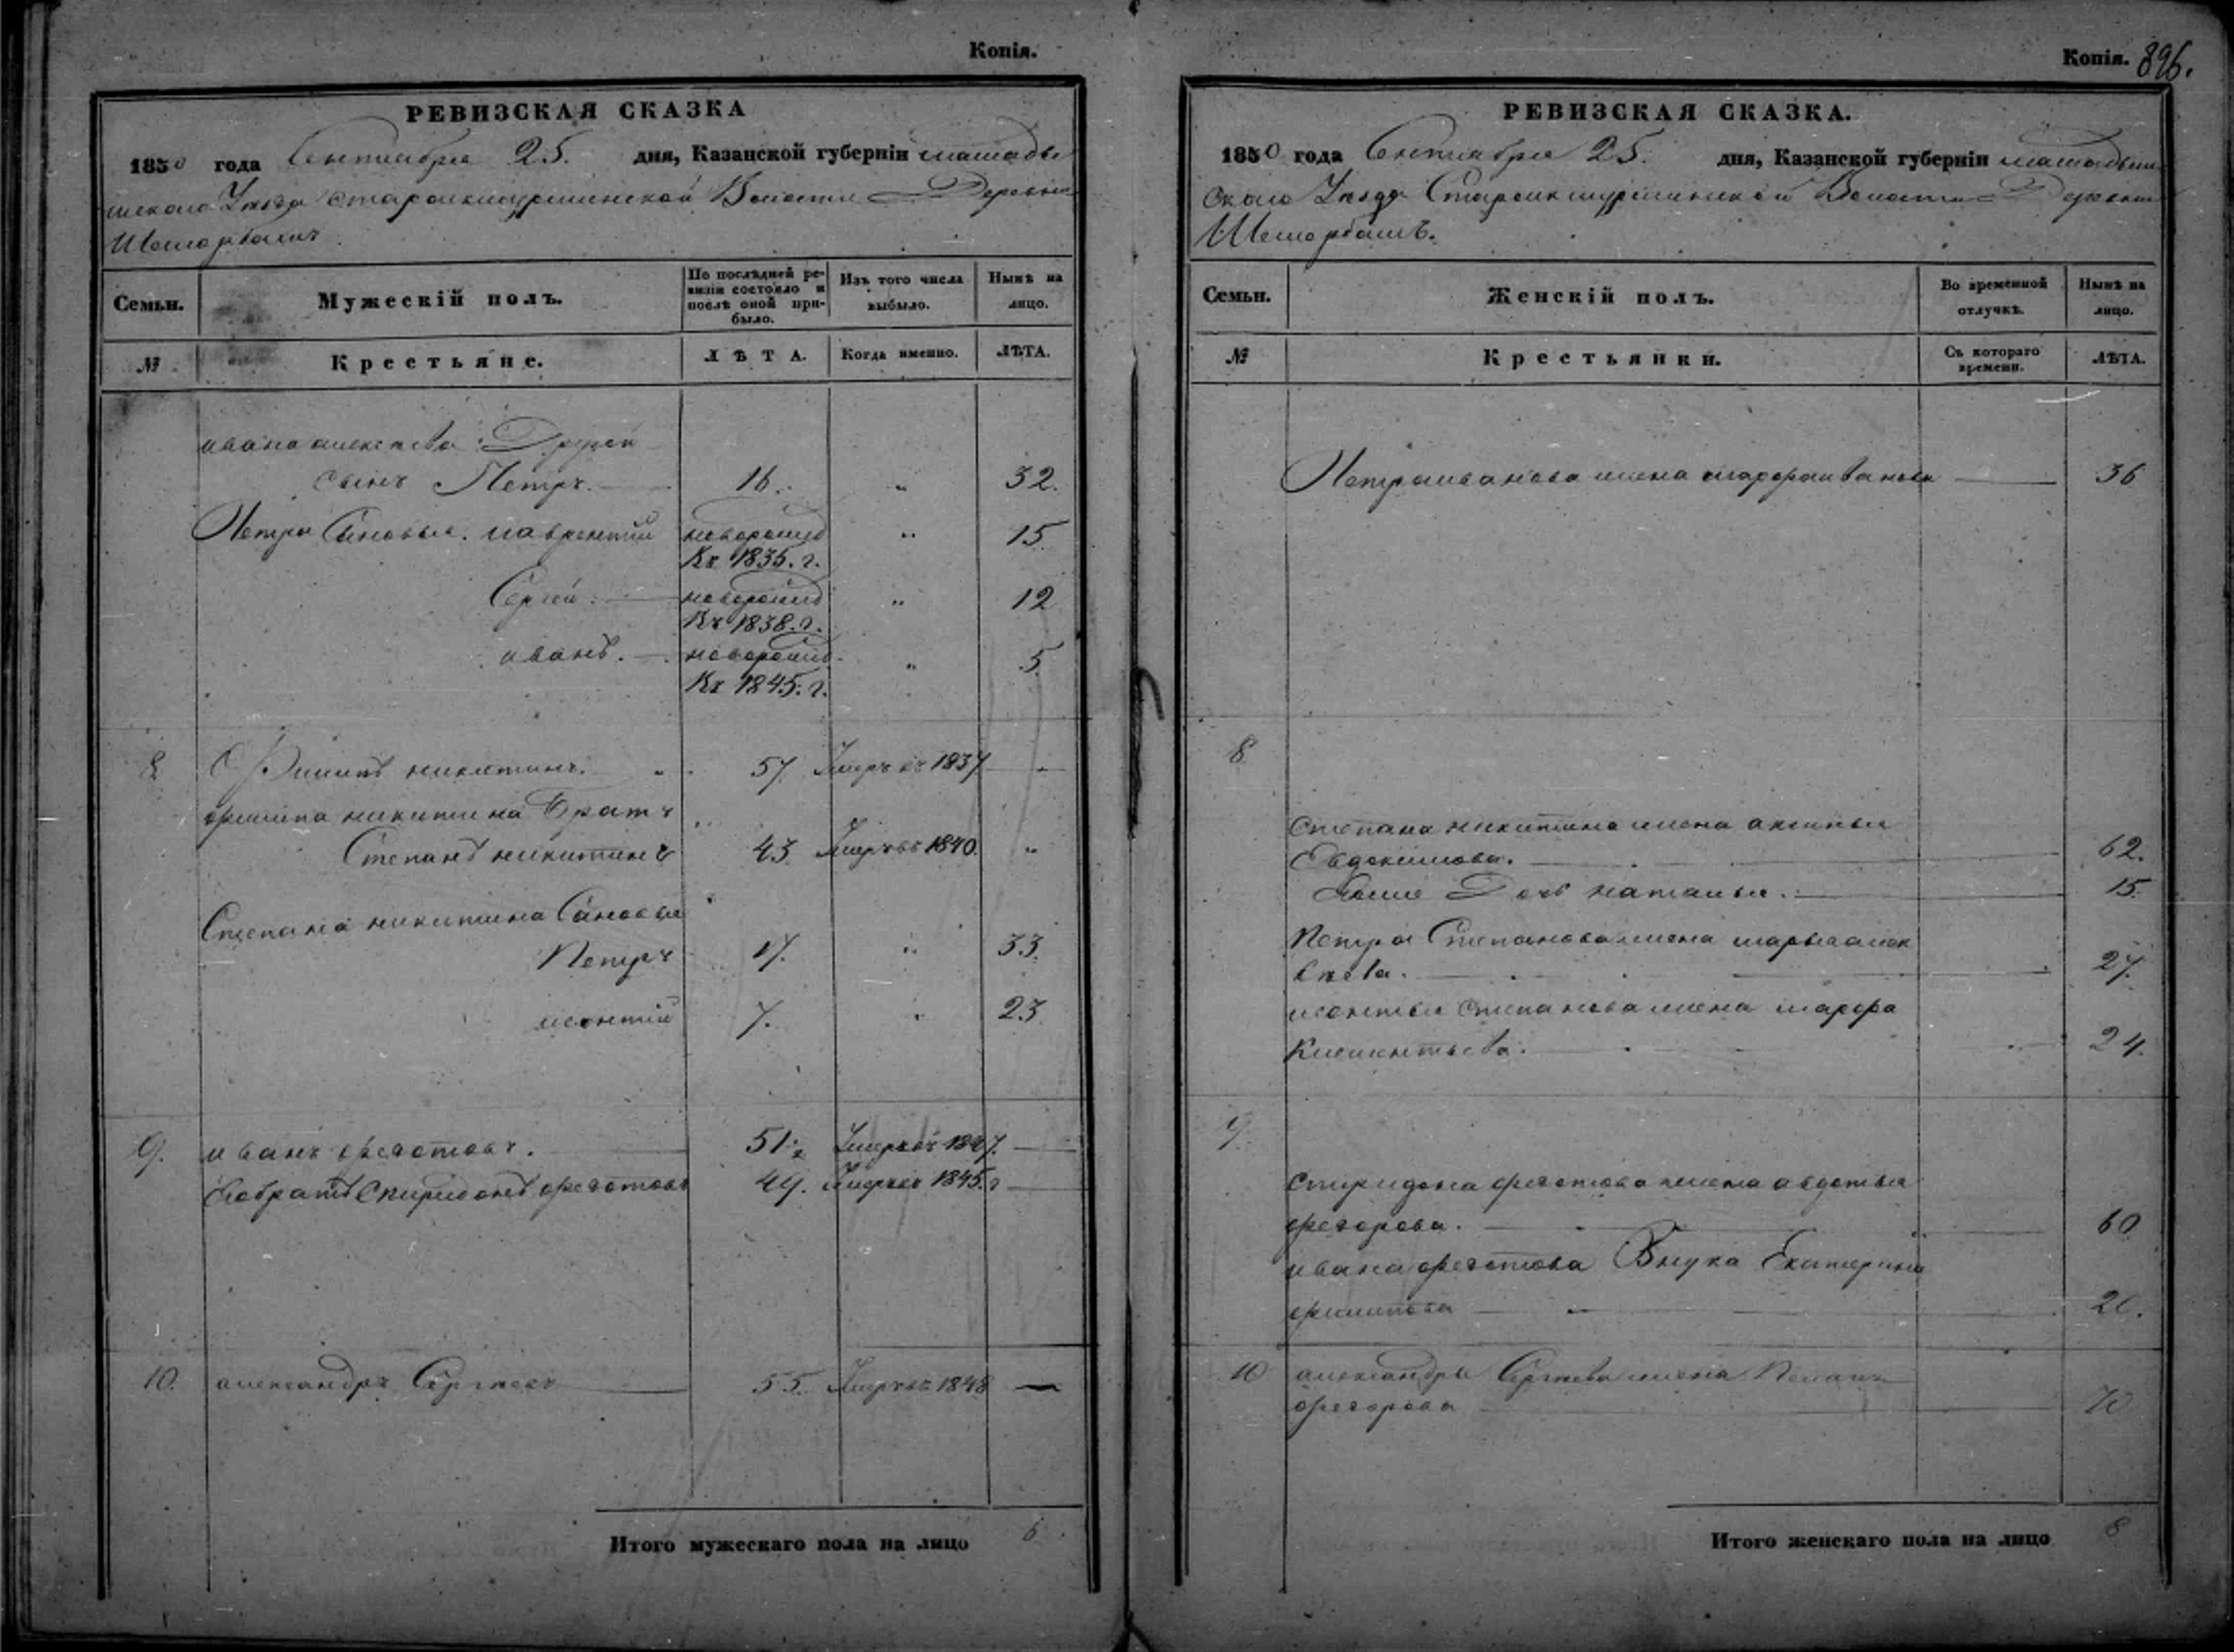 Копія.
РЕВИЗСКАЯ СКАЗКА
1850 года Сентября 25. дня, Казанской губерніи мамадыш
скаго Уѣзда Староикшурминской Волости Деревни
Шеморбашъ
Семьи.
Мужескій полъ.
По послѣдней ре-
визіи состояло и
послѣ оной при-
было.
Изъ того числа
выбыло.
Нынѣ на
лицо.
№
Крестьяне.
ЛѢТА.
Когда именно.
ЛѢТА.
ивана алексѣева Другой
сынъ Петръ. 16. " 32.
Петра Сыновья. лаврентий новорожд " 15
Къ 1835. г.
Сергѣй. новорожд " 12
Къ 1838. г.
иванъ. новорожд. " 5
Къ 1845. г.
8 Филипъ никитинъ. 57. Умеръ въ 1837
филипа никитина Братъ
Степанъ никитинъ 43 Умеръ въ 1840. "
Степана никитина Сыновья
Петръ 17. " 33.
леонтий 7. " 23
9. иванъ федотовъ. 51. Умеръ въ 1847.
Ево братъ Спиридонъ федотовъ 49. Умеръ въ 1845. г
10. александръ Сергѣевъ 55. Умеръ въ 1848
Итого мужескаго пола на лицо 6
Копія. 896.
РЕВИЗСКАЯ СКАЗКА.
1850 года Сентября 25. дня, Казанской губерніи мамадыш
скаго Уѣзда Староикшурминской Волости Деревни
Шеморбашъ.
Семьи.
Женскій полъ.
Во временной
отлучкѣ.
Нынѣ на
лицо.
№
Крестьянки.
Съ котораго
времени.
ЛѢТА.
Петра иванова жена марфа иванова 36
8
Степана никитина жена аксинья
Евдокимова. 62.
Ево Дочь наталья. 15.
Петра Степанова жена марья алек
сѣева. 27.
леонтья степанова жена марфа
Климентьева. 24.
9
спиридона федотова жена авдотья
федорова. 60
ивана федотова Внука Екатерина
филипова 20.
10 александра Сергѣева жена Пелагѣя
федорова 70
Итого женскаго пола на лицо 8